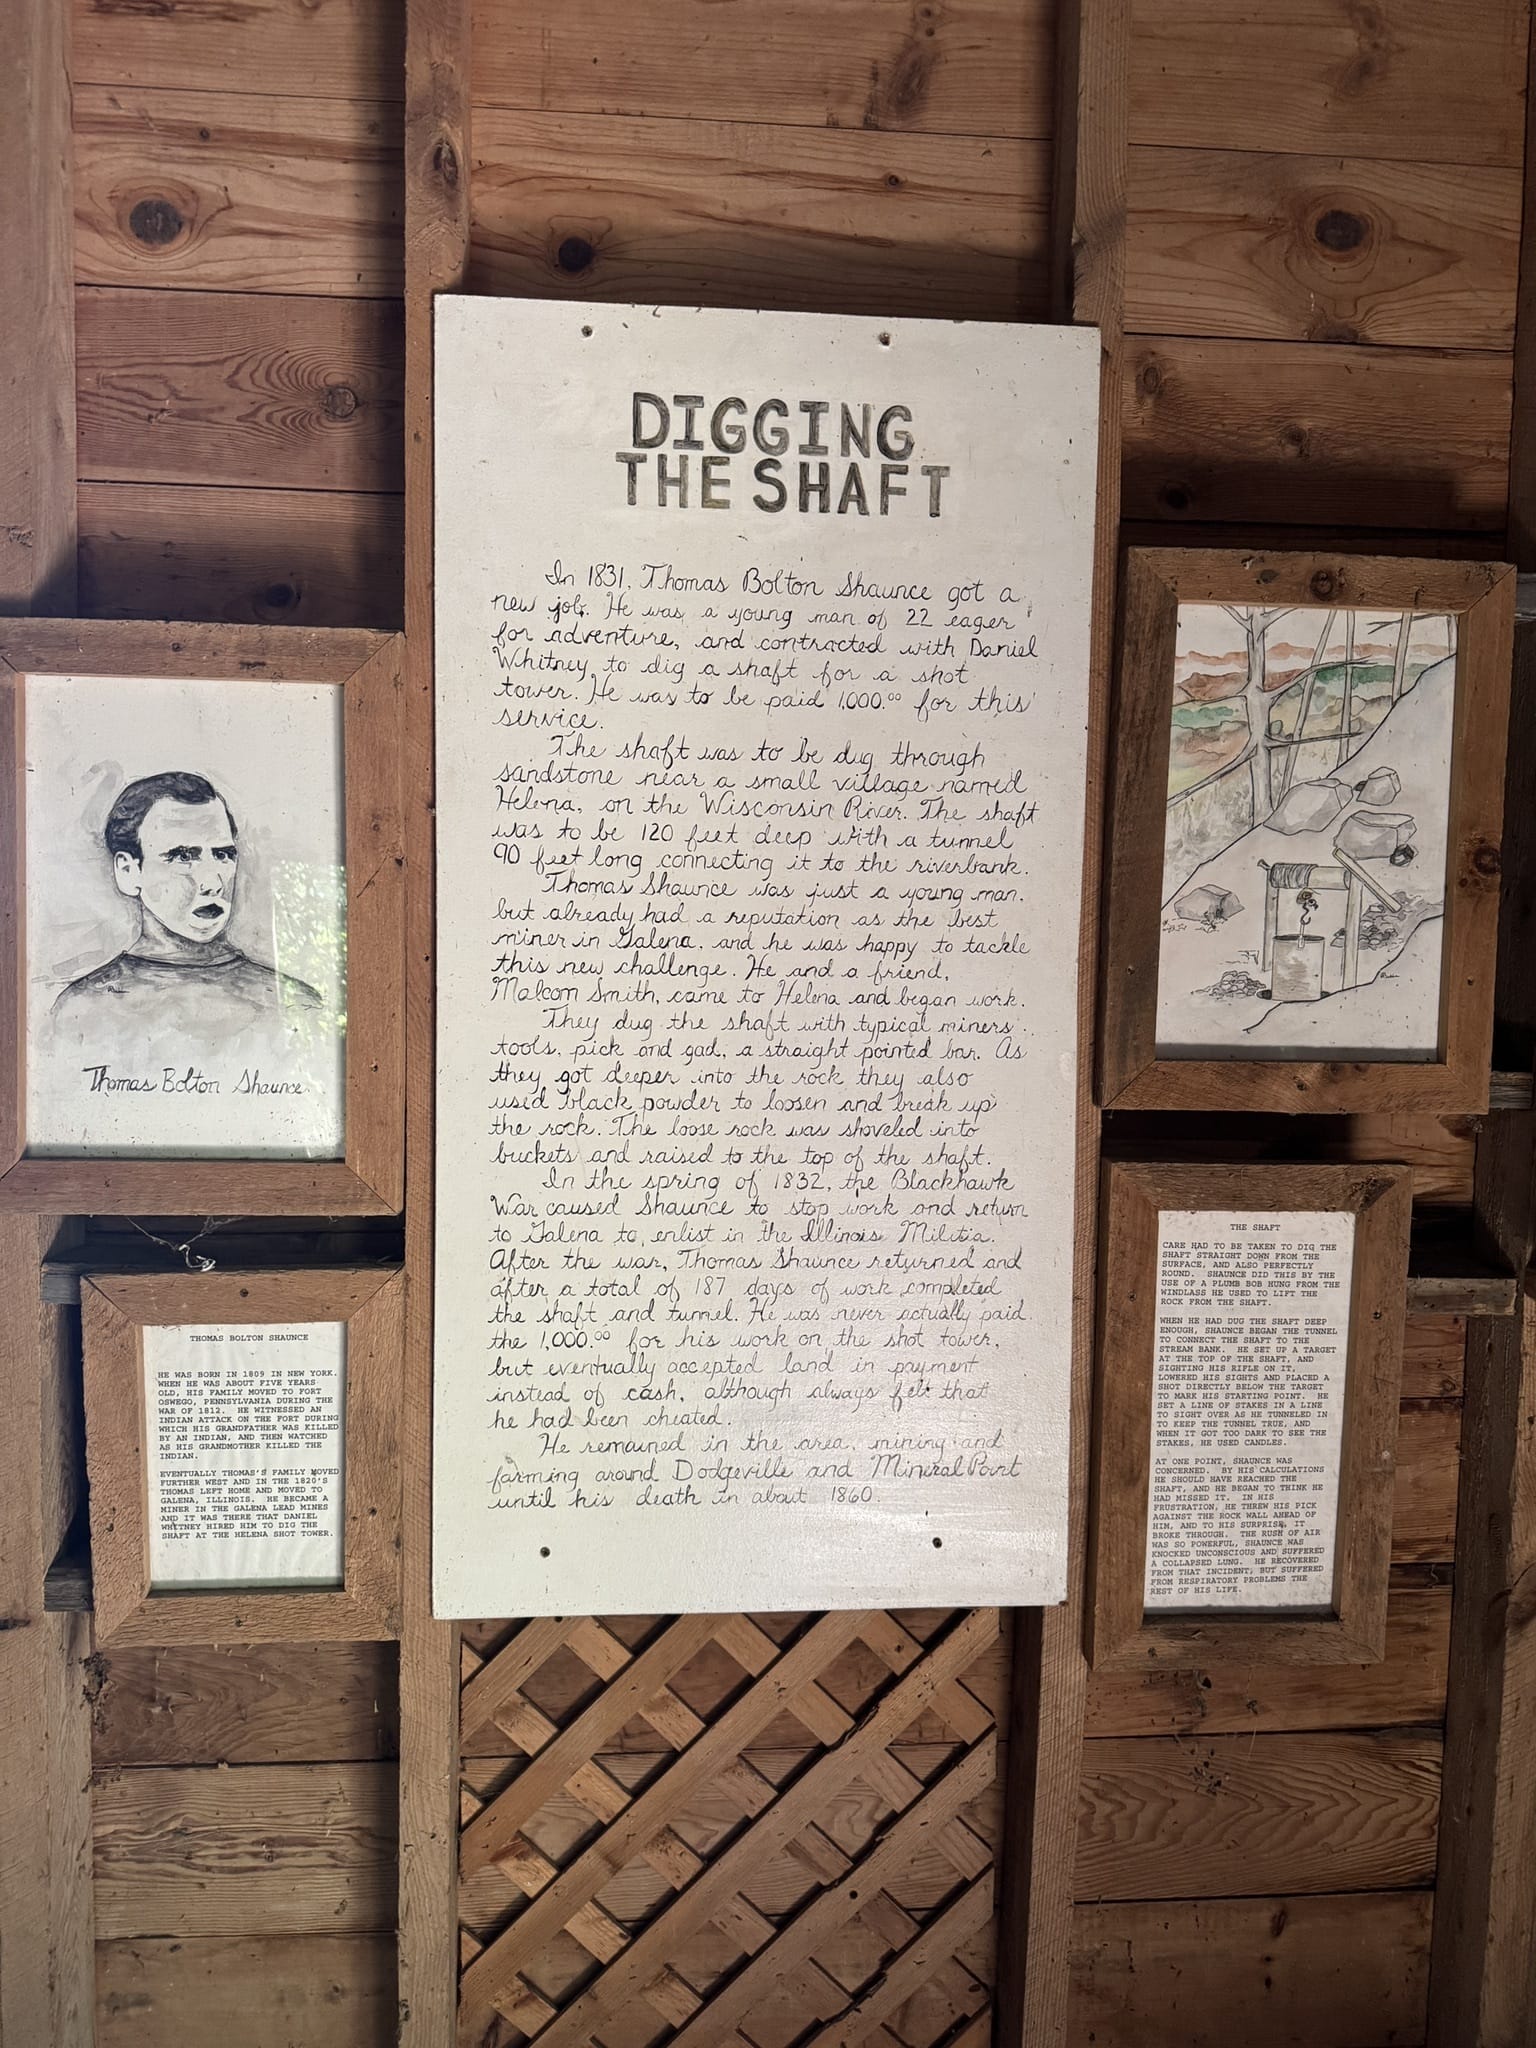 DIGGING
THE SHAFT
In 1831, Thomas Bolton Shaunce got a
new job. He was a young man of 22 eager
for adventure, and contracted with Daniel
Whitney to dig a shaft for a shot
tower. He was to be paid 1,000.00 for this
service.
The shaft was to be dug through
sandstone near a small village named
Helena, on the Wisconsin River. The shaft
was to be 120 feet deep with a tunnel
90 feet long connecting it to the riverbank.
Thomas Shaunce was just a young man,
but already had a reputation as the best
miner in Galena, and he was happy to tackle
this new challenge. He and a friend,
Malcom Smith, came to Helena and began work.
They dug the shaft with typical miners
tools, pick and gad, a straight pointed bar. As
they got deeper into the rock they also
used black powder to loosen and break up
the rock. The loose rock was shoveled into
buckets and raised to the top of the shaft.
In the spring of 1832, the Blackhawk
War caused Shaunce to stop work and return
to Galena to enlist in the Illinois Militia.
After the war, Thomas Shaunce returned and
after a total of 187 days of work completed
the shaft and tunnel. He was never actually paid
the 1,000.00 for his work on the shot tower,
but eventually accepted land in payment
instead of cash, although always felt that
he had been cheated.
He remained in the area, mining and
farming around Dodgeville and Mineral Point
until his death in about 1860.
Thomas Bolton Shaunce
THOMAS BOLTON SHAUNCE
HE WAS BORN IN 1809 IN NEW YORK.
WHEN HE WAS ABOUT FIVE YEARS
OLD, HIS FAMILY MOVED TO FORT
OSWEGO, PENNSYLVANIA DURING THE
WAR OF 1812. HE WITNESSED AN
INDIAN ATTACK ON THE FORT DURING
WHICH HIS GRANDFATHER WAS KILLED
BY AN INDIAN, AND THEN WATCHED
AS HIS GRANDMOTHER KILLED THE
INDIAN.
EVENTUALLY THOMAS'S FAMILY MOVED
FURTHER WEST AND IN THE 1820'S
THOMAS LEFT HOME AND MOVED TO
GALENA, ILLINOIS. HE BECAME A
MINER IN THE GALENA LEAD MINES
AND IT WAS THERE THAT DANIEL
WHITNEY HIRED HIM TO DIG THE
SHAFT AT THE HELENA SHOT TOWER.
THE SHAFT
CARE HAD TO BE TAKEN TO DIG THE
SHAFT STRAIGHT DOWN FROM THE
SURFACE, AND ALSO PERFECTLY
ROUND. SHAUNCE DID THIS BY THE
USE OF A PLUMB BOB HUNG FROM THE
WINDLASS HE USED TO LIFT THE
ROCK FROM THE SHAFT.
WHEN HE HAD DUG THE SHAFT DEEP
ENOUGH, SHAUNCE BEGAN THE TUNNEL
TO CONNECT THE SHAFT TO THE
STREAM BANK. HE SET UP A TARGET
AT THE TOP OF THE SHAFT, AND
SIGHTING HIS RIFLE ON IT,
LOWERED HIS SIGHTS AND PLACED A
SHOT DIRECTLY BELOW THE TARGET
TO MARK HIS STARTING POINT. HE
SET A LINE OF STAKES IN A LINE
TO SIGHT OVER AS HE TUNNELED IN
TO KEEP THE TUNNEL TRUE, AND
WHEN IT GOT TOO DARK TO SEE THE
STAKES, HE USED CANDLES.
AT ONE POINT, SHAUNCE WAS
CONCERNED. BY HIS CALCULATIONS
HE SHOULD HAVE REACHED THE
SHAFT, AND HE BEGAN TO THINK HE
HAD MISSED IT. IN HIS
FRUSTRATION, HE THREW HIS PICK
AGAINST THE ROCK WALL AHEAD OF
HIM, AND TO HIS SURPRISE, IT
BROKE THROUGH. THE RUSH OF AIR
WAS SO POWERFUL, SHAUNCE WAS
KNOCKED UNCONSCIOUS AND SUFFERED
A COLLAPSED LUNG. HE RECOVERED
FROM THAT INCIDENT, BUT SUFFERED
FROM RESPIRATORY PROBLEMS THE
REST OF HIS LIFE.